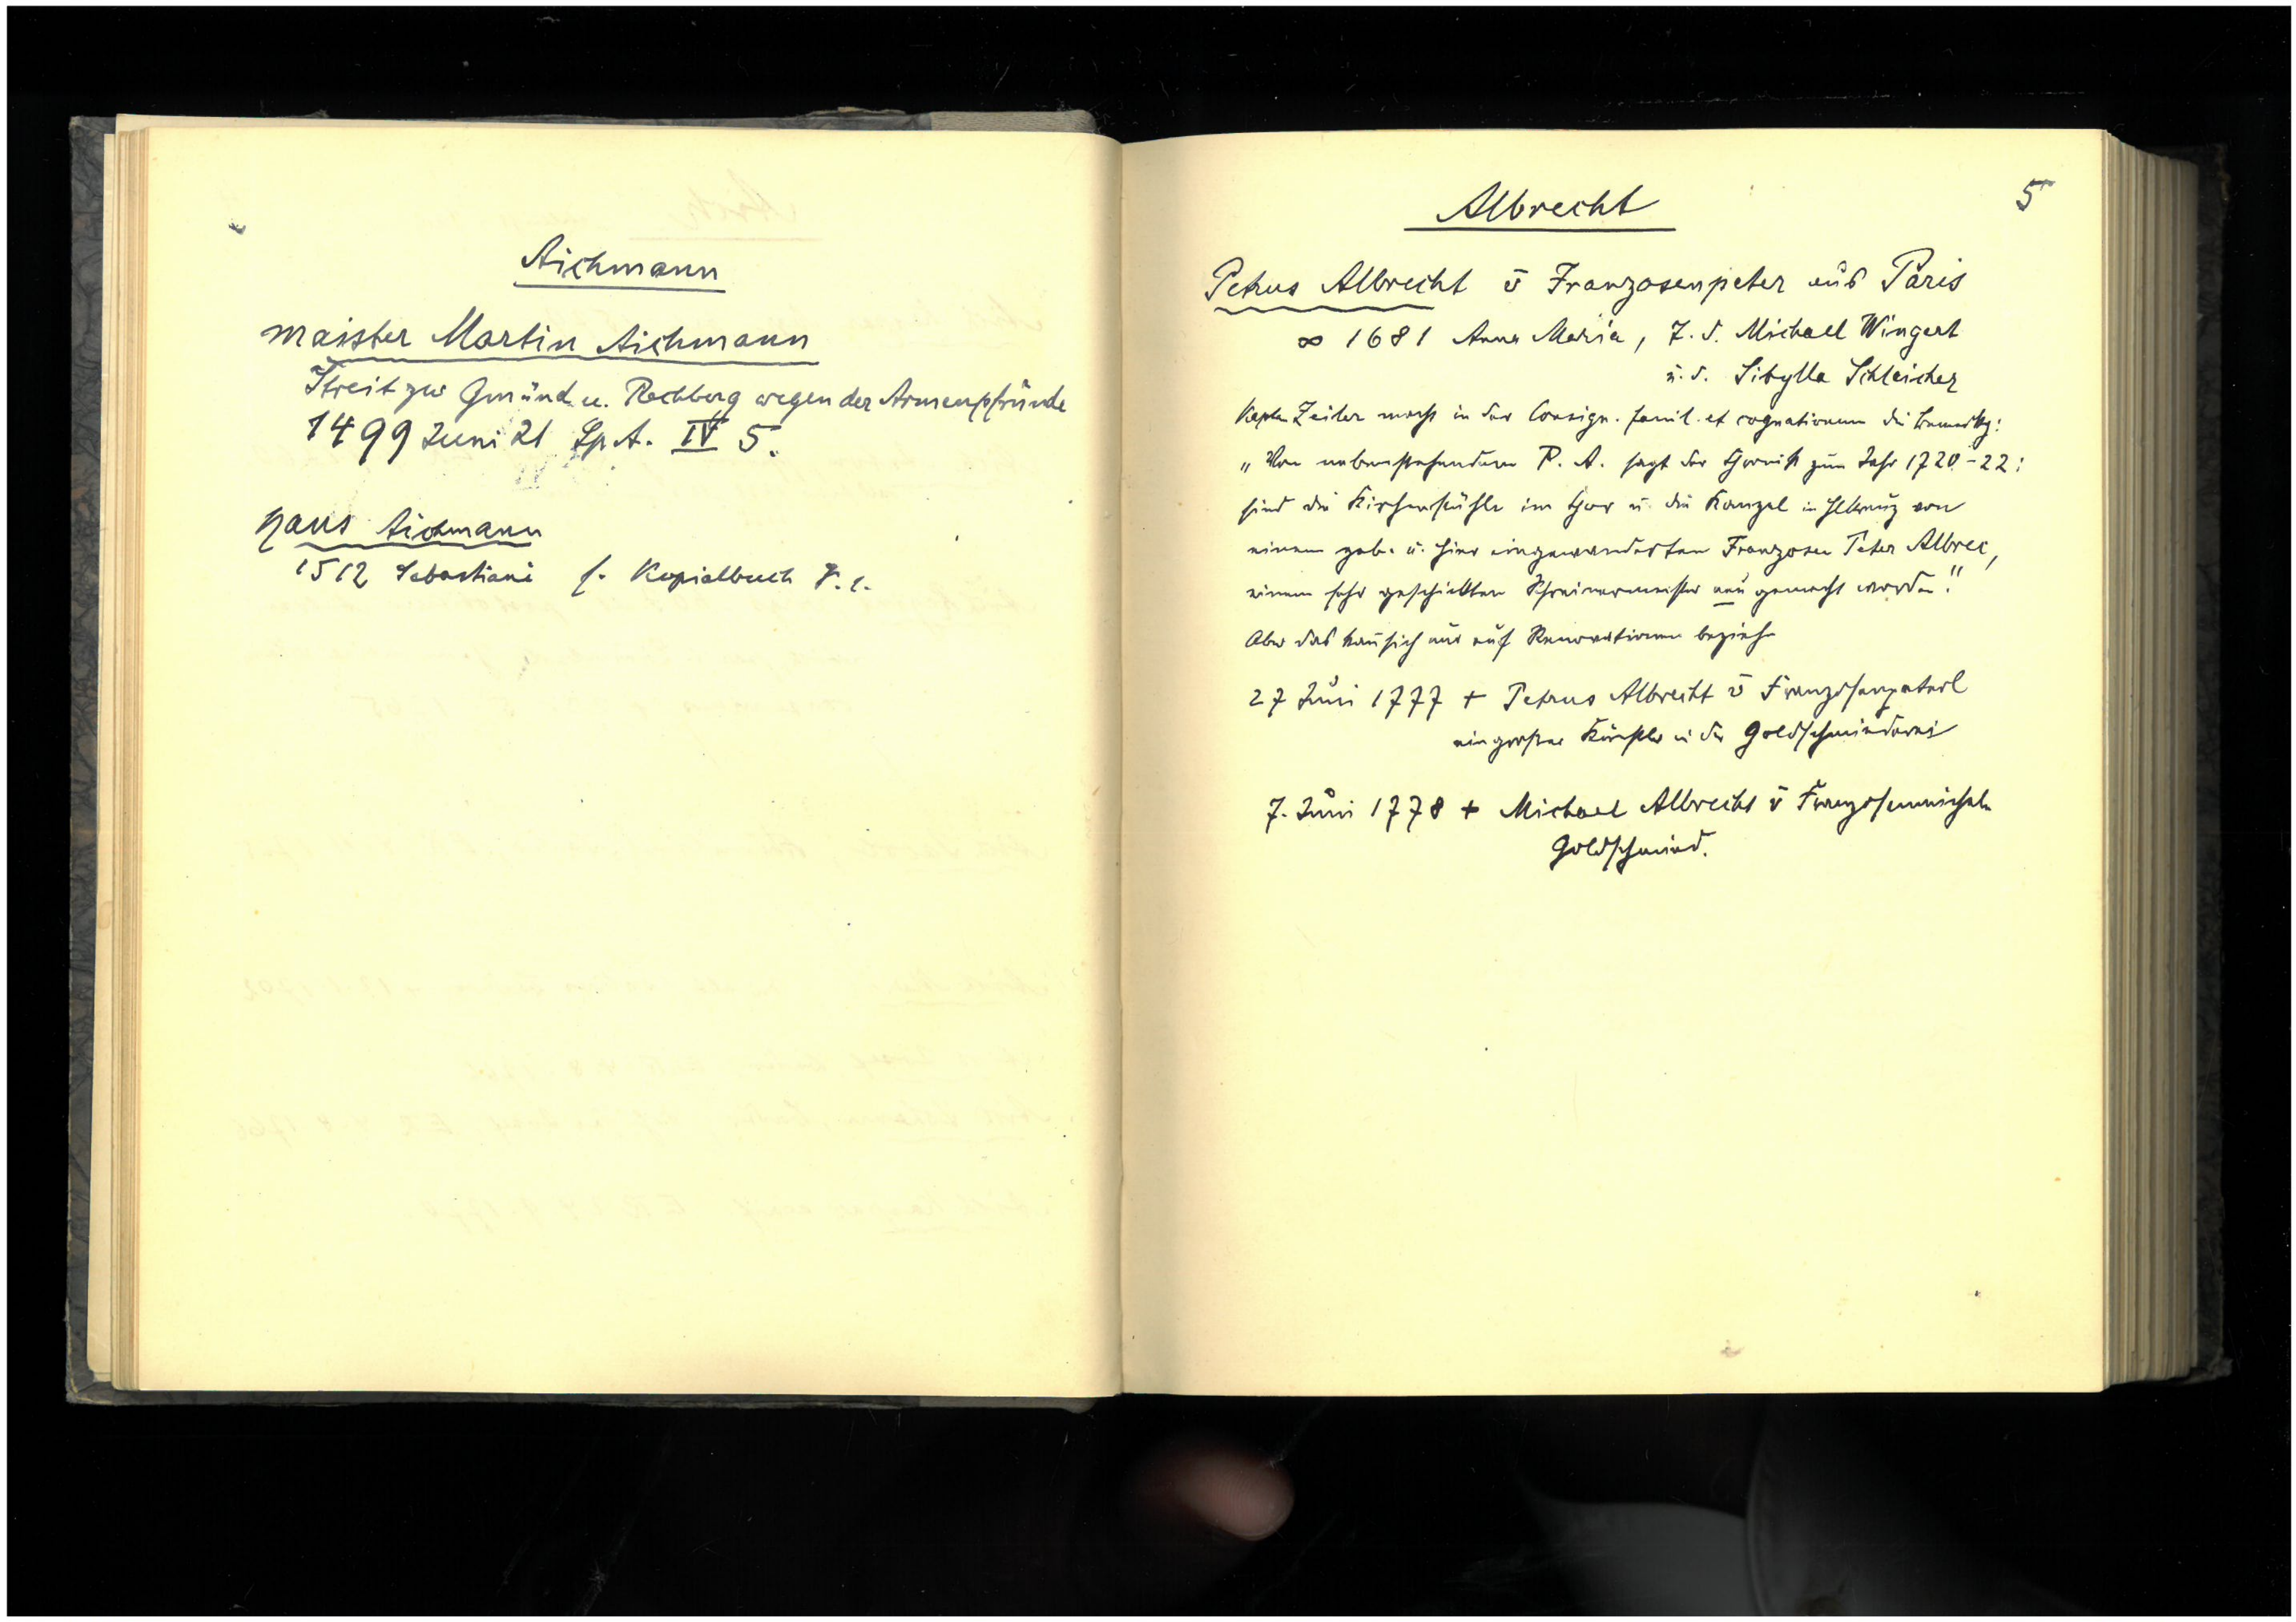 Aichmann
Maister Martin Aichmann
Streit zw Gmünd u. Rechberg wegen der Armenpfründe
1499 Juni 21 Sp. A. IV 5.
Hans Aichmann
1512 Sebastiani s. Kopialbuch
5
Albrecht
Petrus Albrecht v̄ Franzosenpeter aus Paris
∞ 1681 Anna Maria, T. d. Michael Wingert
u. d. Sibylla Schleicher
Kapln Zeiler macht in der Consign. famil. et cognationum die Bemerkg:
„Von nebenstehendem P. A. sagt der Chronist zum Jahr 1720-22:
sind die Kirchenstühle im Chor u. die Kanzel in Hlkreuz von
einem geb. u. hier eingewanderten Franzosen Peter Albrec,
einem sehr geschickten Schreinermeister neu gemacht worden."
Aber das kann sich nur auf Renovationen beziehn
27 Juni 1777 + Petrus Albrecht v̄ Franzosenpeterl
ein großer Künstler in der Goldschmiederei
7. Juni 1778 + Michael Albrecht v̄ Franzosenmichele
Goldschmied.